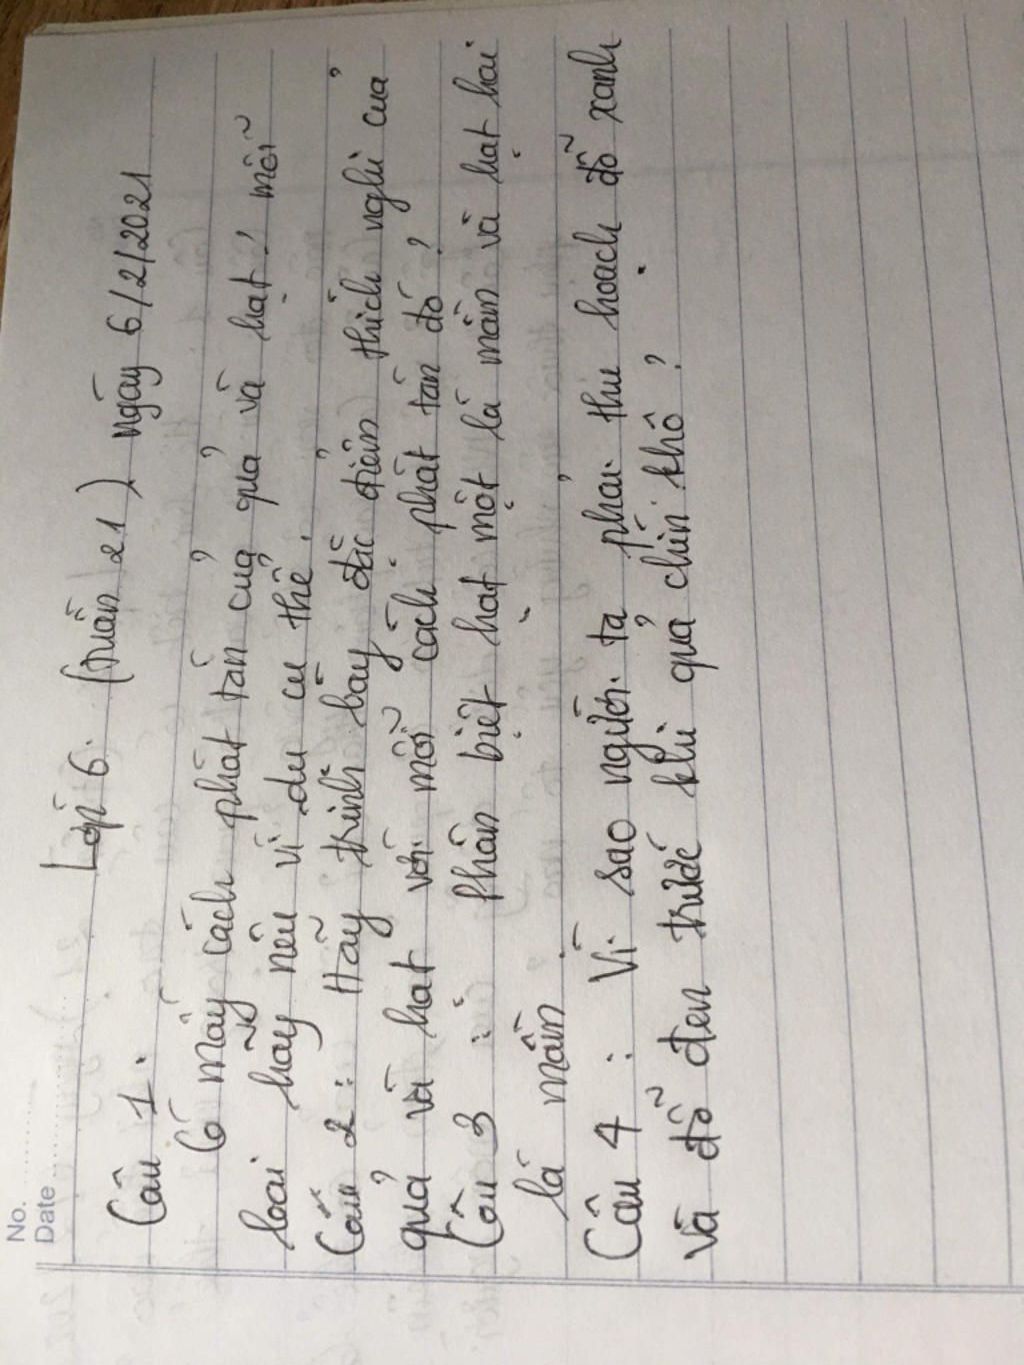 No.
Date
Lớp 6. (tuần 21) ngày 6/2/2021
Câu 1.
Có mấy cách phát tán của quả và hạt? mỗi
loại hãy nêu ví dụ cụ thể.
Câu 2: Hãy trình bày đặc điểm thích nghi của
quả và hạt với mỗi cách phát tán đó?
Câu 3: Phân biệt hạt một lá mầm và hạt hai
lá mầm.
Câu 4: Vì sao người ta phải thu hoạch đỗ xanh
và đỗ đen trước khi quả chín khô?